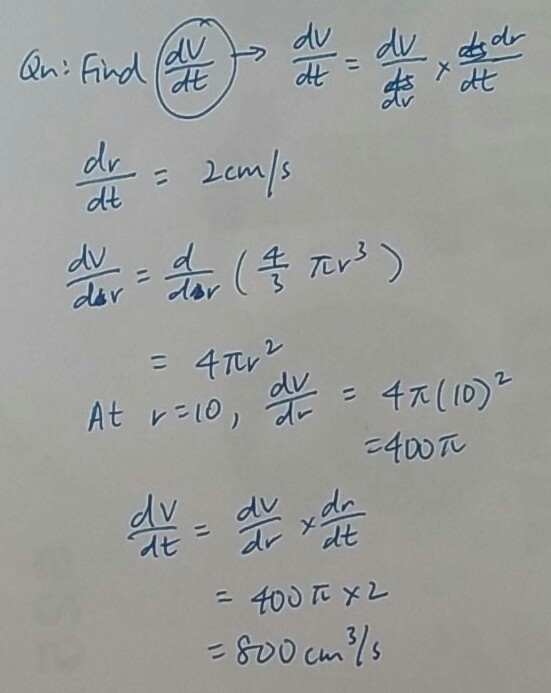 Qn: Find dV/dt → dV/dt = dV/dr × dr/dt
dr/dt = 2cm/s
dV/dr = d/dr (4/3 πr³)
= 4πr²
At r=10, dV/dr = 4π(10)²
=400π
dV/dt = dV/dr × dr/dt
= 400π×2
=800cm³/s